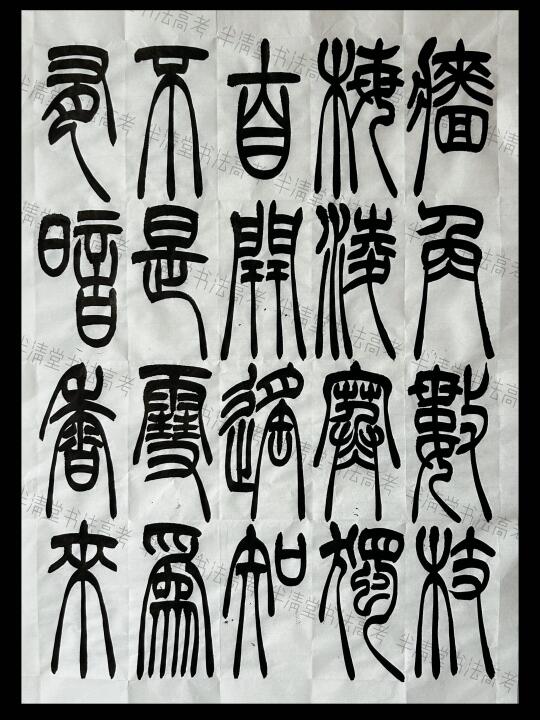 牆角數枝
梅淩寒獨
自開遙知
不是雪爲
有暗香來
半清堂书法高考